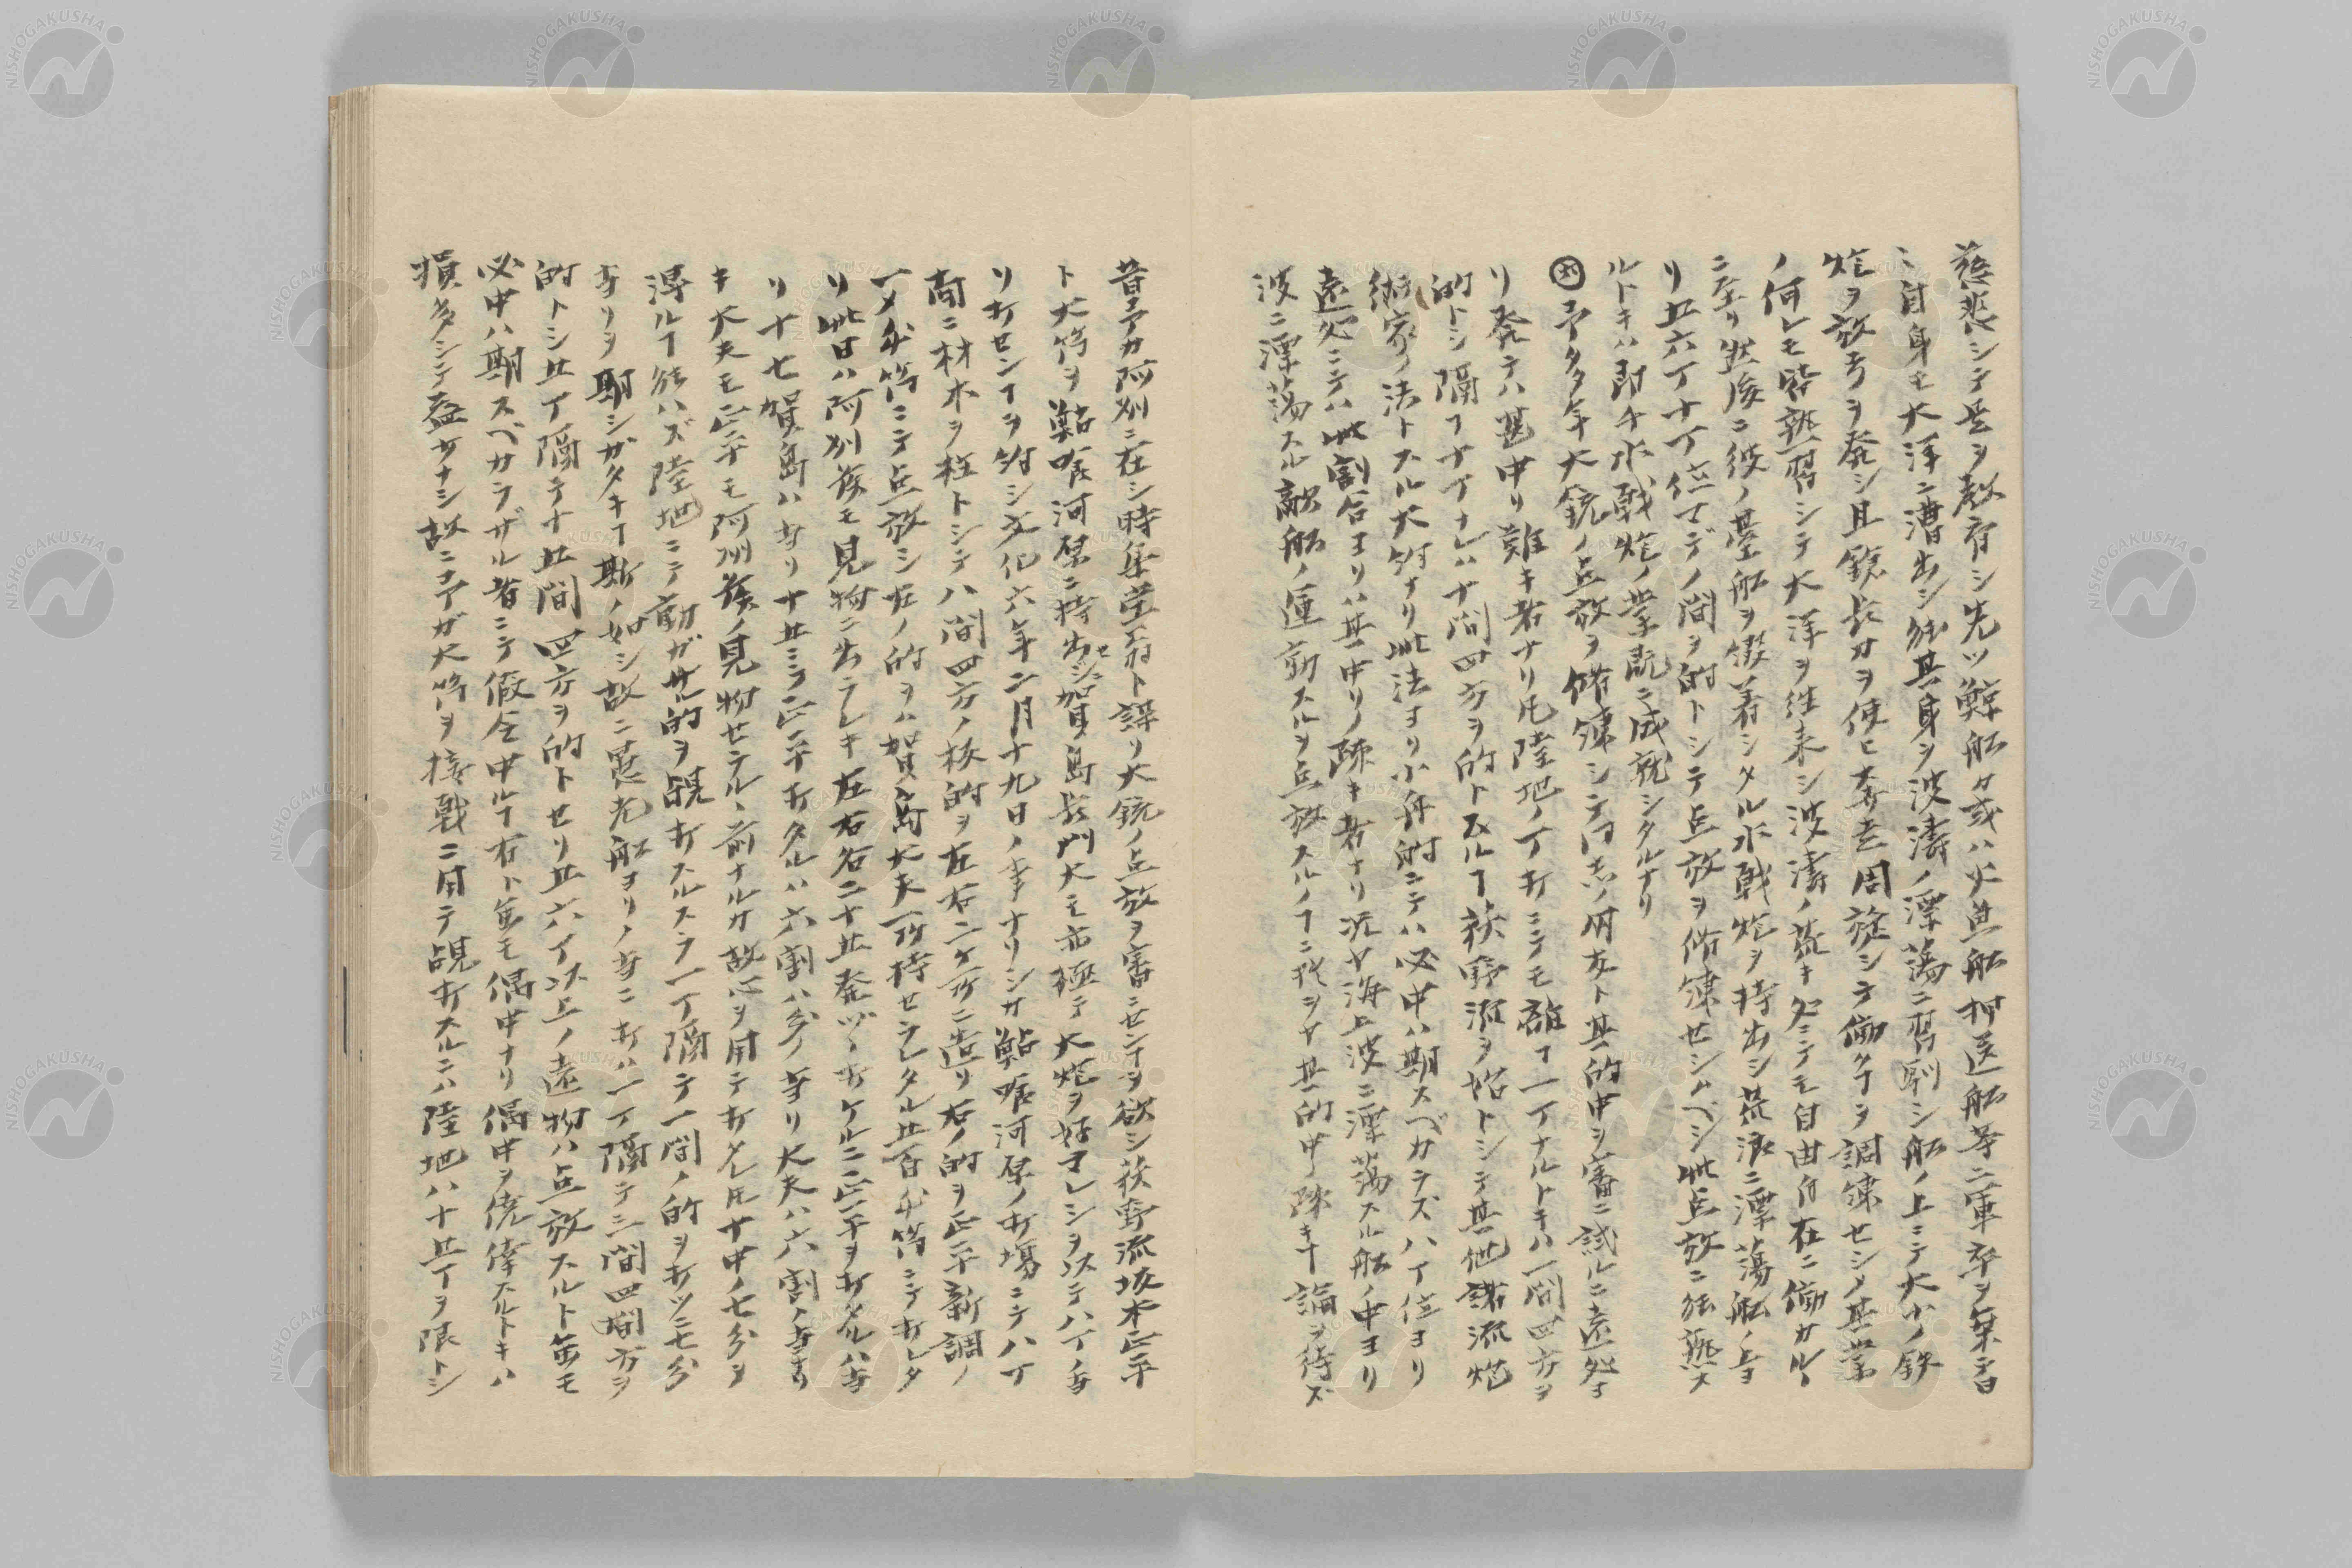 慈悲シテ是ヲ教育シ先ツ鯨船カ或ハ火魚船押送船等ニ軍卒ヲ集テ日
ニ自身モ大洋ニ漕出シ能其身ヲ波濤ノ漂蕩ニ習馴シ船ノ上ニテ大小ノ鉄
炮ヲ放チヲ発シ且鎗長刀ヲ使ヒ奔走周旋シテ働クヿヲ調練セシメ其業
ノ何レモ皆熟習シテ大洋ヲ往来シ波濤ノ荒キ処ニテモ自由自在ニ働カルヽ
ニ至リ然後ニ彼ノ臺船ヲ綴着シタル水戦炮ヲ持出シ荒浪ニ漂蕩船ノ上ヨ
リ五六丁十丁位マデノ間ヲ的トシテ点放ヲ修錬セシムベシ此点放ニ能熟ス
ルトキハ即チ水戦炮ノ業既ニ成就シタルナリ
予多年大銃ノ点放ヲ修錬シテ同志ノ朋友ト其的中ヲ審ニ試ルニ遠処ヨ
リ発テハ甚中リ難キ者ナリ凡陸地ノ丁打ニテモ離丁一丁ナルトキハ一間四方ヲ
的トシ隔ヿ十丁ナレハ十間四方ヲ的トスルヿ荻野流ヲ始トシテ其他諸流炮
術家ノ法トスル大銃ナリ此法ヨリ小舟的ニテハ必中ハ期スベカラズ八丁位ヨリ
遠処ニテハ此割合ヨリハ其中リノ疎キ者ナリ况ヤ海上波ニ漂蕩スル船ノ中ヨリ
波ニ漂蕩スル敵船ノ運動スルヲ点放スルノヿニ於ヲヤ其的中ノ疎キヿ論ヲ待ズ
昔予カ阿州ニ在シ時集堂翁ト謀リ大銃ノ点放ヲ審ニセンヿヲ欲シ荻野流坂本正平
ト大筒ヲ鮎喰河原ニ持出セシニ賀島長門大夫モ亦極テ大炮ヲ好マレシヲ以テ八丁ノ
リ打センヿヲ約シ文化六年二月十九日ノ事ナリシカ鮎喰河原ノ打場ニテ八丁
商ニ材木ヲ柱トシテ八間四方ノ板的ヲ左右二ケ所ニ造リ右ノ的ヲ正平新調ノ
一〆目筒ニテ点放シ左ノ的ヲハ賀島大夫所持セラレタル五百目筒ニテ打レタ
リ此日ハ阿州侯モ見物ニ出ラレキ左右各二十五発ヅヽ打ケルニ正平ヲ打タルハ
リ十七賀島ハ リ十五ニテ正平打タルハ六割八分ノ リ大夫ハ六割ノ ナリ
キ大夫モ正平モ阿州侯ノ見物セラルヽ前ナルカ故心ヲ用テ打タレ𪜈十中ノ七分ヲ
得ルヿ能ハズ陸地ニテ動カサル的ヲ覘打スルスラ一丁隔テ一間ノ的ヲ打ツニ七分
リヲ期シガタキヿ斯ノ如シ故ニ 船ヨリノ ニ打ハ一丁隔テ三間四間方ヲ
的トシ五丁隔テ十五間四方ヲ的トセリ五六丁以上ノ遠物ハ点放スルト雖モ
必中ハ期スベカラザル者ニテ假令中ルヿ有ト雖モ偶中ナリ偶中ヲ僥倖スルトキハ
損多シテ益少ナシ故ニ予ガ大筒ヲ接戦ニ用テ覘打スルニハ陸地ハ十五丁ヲ限トシ